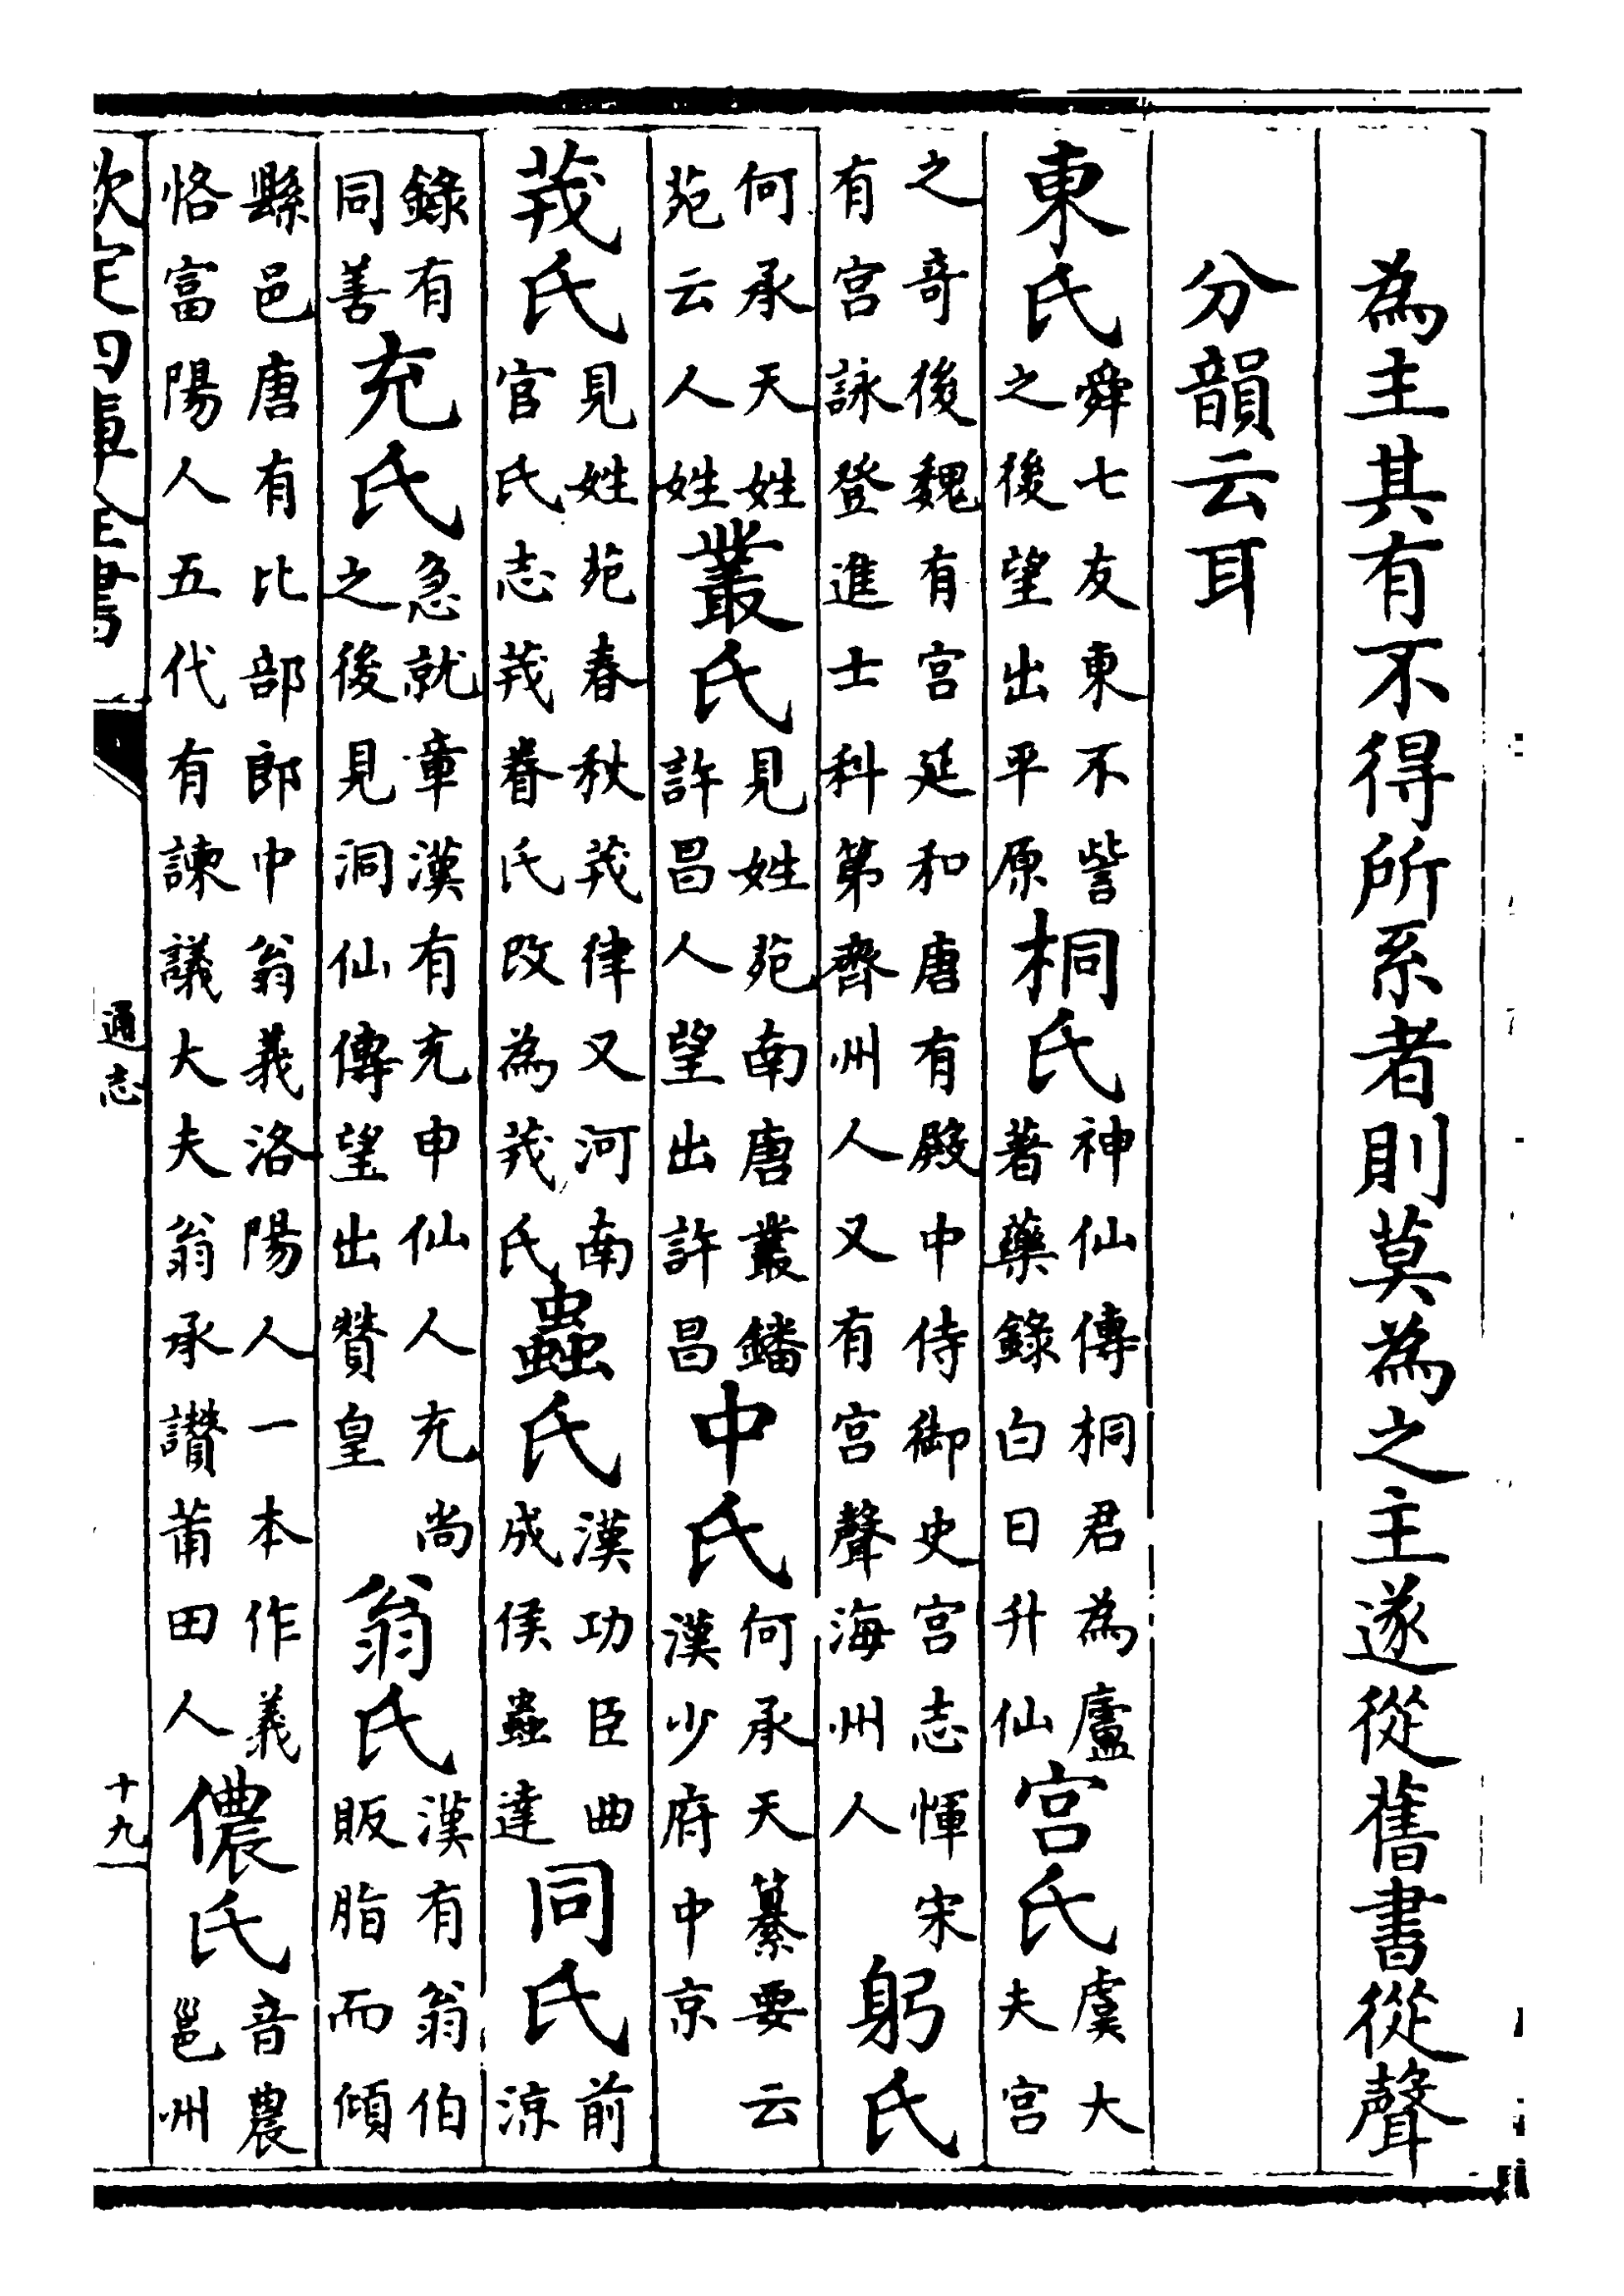 為主其有不得所系者則莫為之主遂從舊書從聲
分韻云耳
東氏舜七友東不訾之後望出平原桐氏神仙傳桐君為廬著藥錄白日升仙宫氏虞大夫宫
之奇後魏有宫延和唐有殿中侍御史宫志惲宋有宫詠登進士科第齊州人又有宫聲海州人躬氏
何承天姓苑云人姓叢氏見姓苑南唐叢鐇許昌人望出許昌中氏何承天纂要云漢少府中京
茙氏見姓苑春秋茙律又河南官氏志茙眷氏改為茙氏蟲氏漢功臣曲成侯蟲達同氏前涼
錄有同善充氏急就章漢有充申仙人充尚之後見洞仙傳望出贊皇翁氏漢有翁伯販脂而傾
縣邑唐有比部郎中翁義洛陽人一本作義恪富陽人五代有諫議大夫翁承讚莆田人儂氏音農邕州
欽定四庫全書
通志
十九